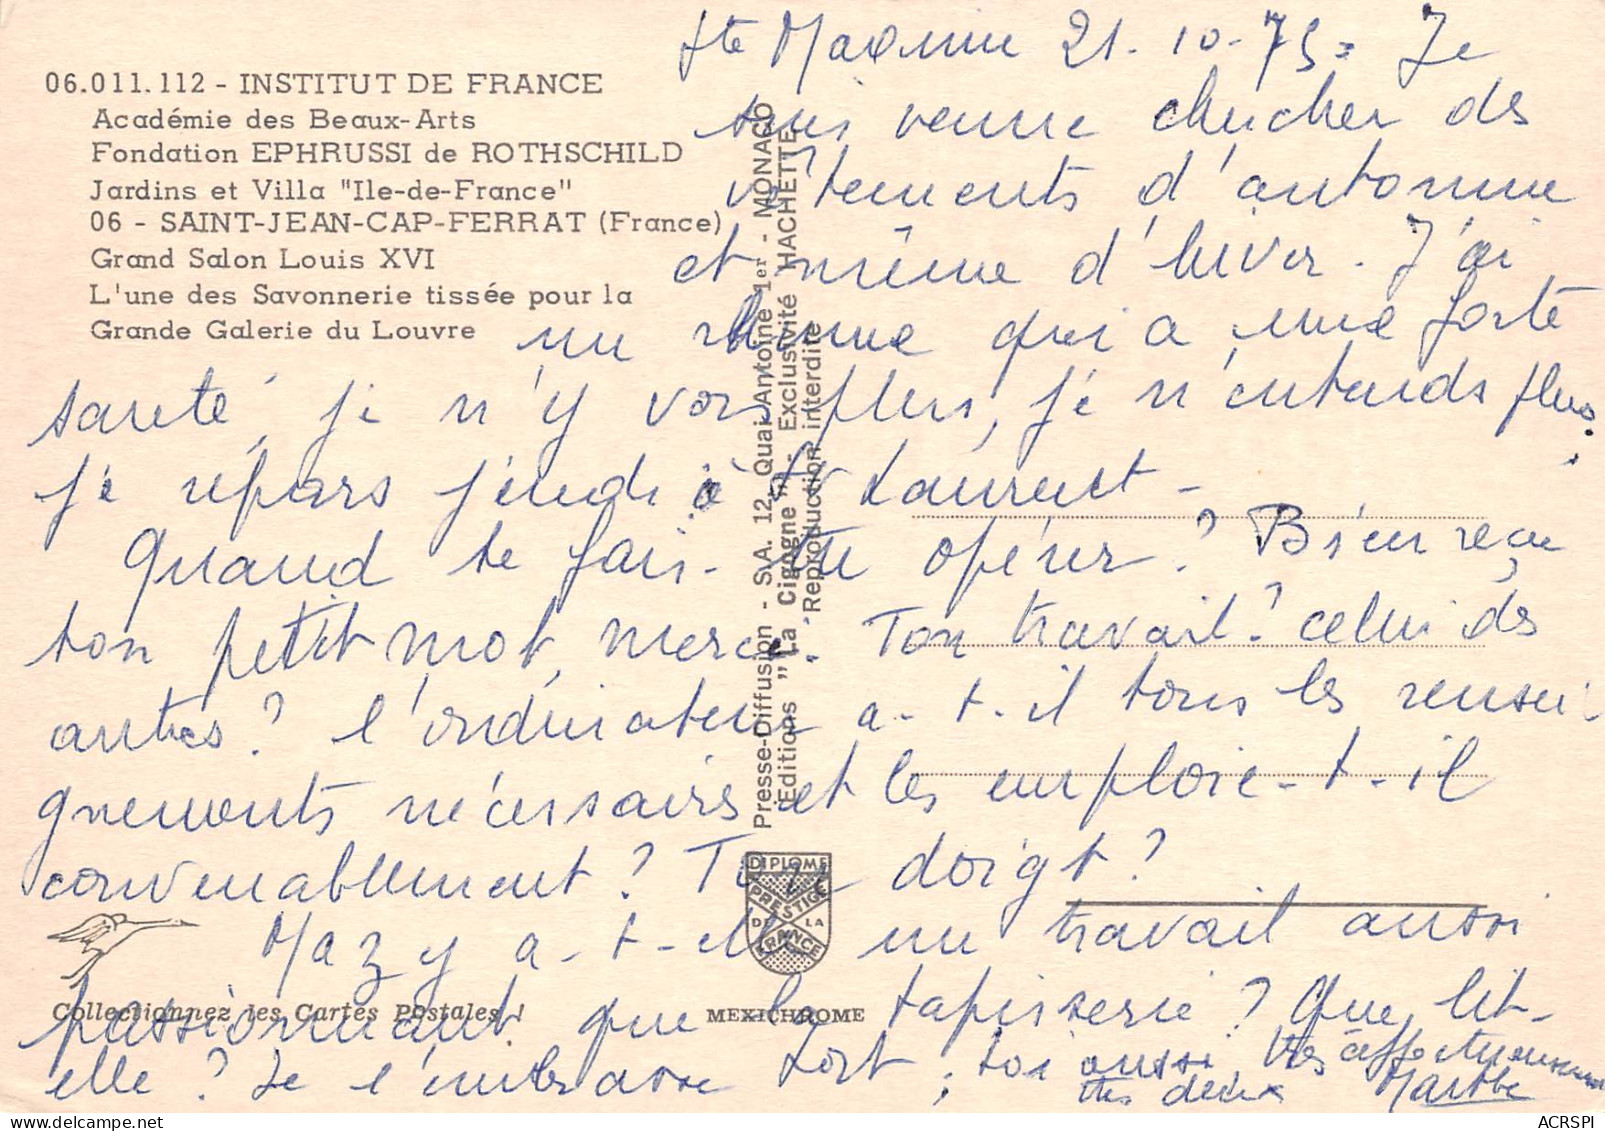 06.011.112 - INSTITUT DE FRANCE
Académie des Beaux-Arts
Fondation EPHRUSSI de ROTHSCHILD
Jardins et Villa "Ile-de-France"
06 - SAINT-JEAN-CAP-FERRAT (France)
Grand Salon Louis XVI
L'une des Savonnerie tissée pour la
Grande Galerie du Louvre
Ste Maxime 21-10-75. Je
suis venue chercher des
vêtements d'automne
et même d'hiver. J'ai
un rhume qui a une forte
santé, je n'y vois plus, je n'entends plus.
Je repars jeudi à St Laurent -
Quand te fais-tu opérer ? Bien reçu
ton petit mot, merci. Ton travail ? celui des
autres ? l'ordinateur a-t-il tous les rensei-
gnements nécessaires et les emploie-t-il
convenablement ? Ton doigt ?
Mazy a-t-elle un travail aussi
passionnant que la tapisserie ? Que lit-
elle ? Je l'embrasse fort, toi aussi, très affectueusement
tes deux Marthe
Presse-Diffusion - S.A. 12, Quai Antoine 1er - MONACO
Editions "La Cigogne" - Exclusivité HACHETTE
Reproduction interdite
DIPLOME
PRESTIGE
DE LA
FRANCE
Collectionnez les Cartes Postales !
MEXICHROME
ACRSPI